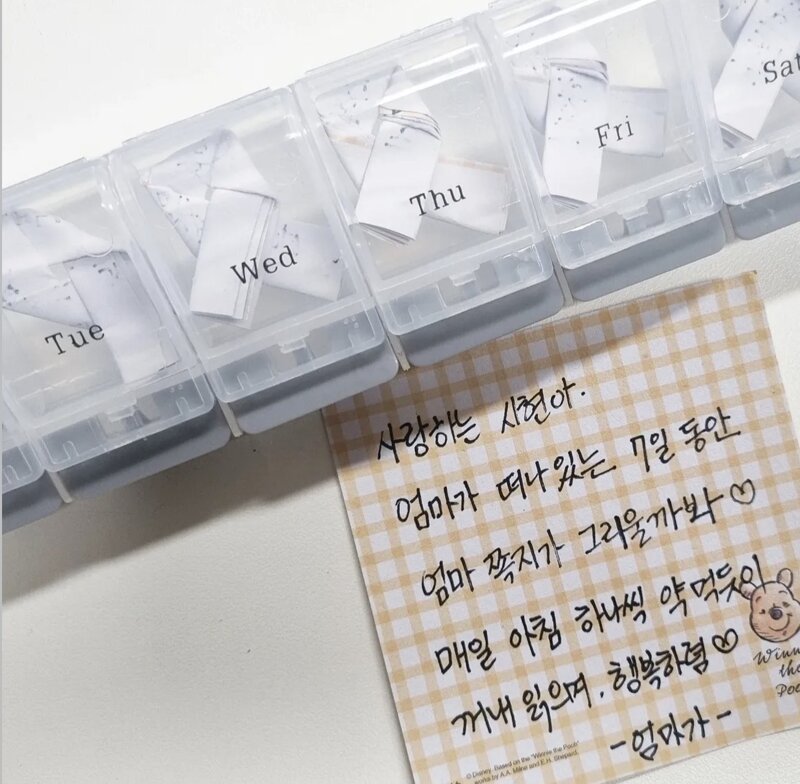 Tue
Wed
Thu
Fri
Sat
사랑하는 시현아.
엄마가 떠나있는 7일 동안
엄마 쪽지가 그리울까봐 ♡
매일 아침 하나씩 약 먹듯이
꺼내 읽으며, 행복하렴 ♡
-엄마가-
Winn
the
Poo
© Disney. Based on the "Winnie the Pooh"
works by A.A. Milne and E.H. Shepard.